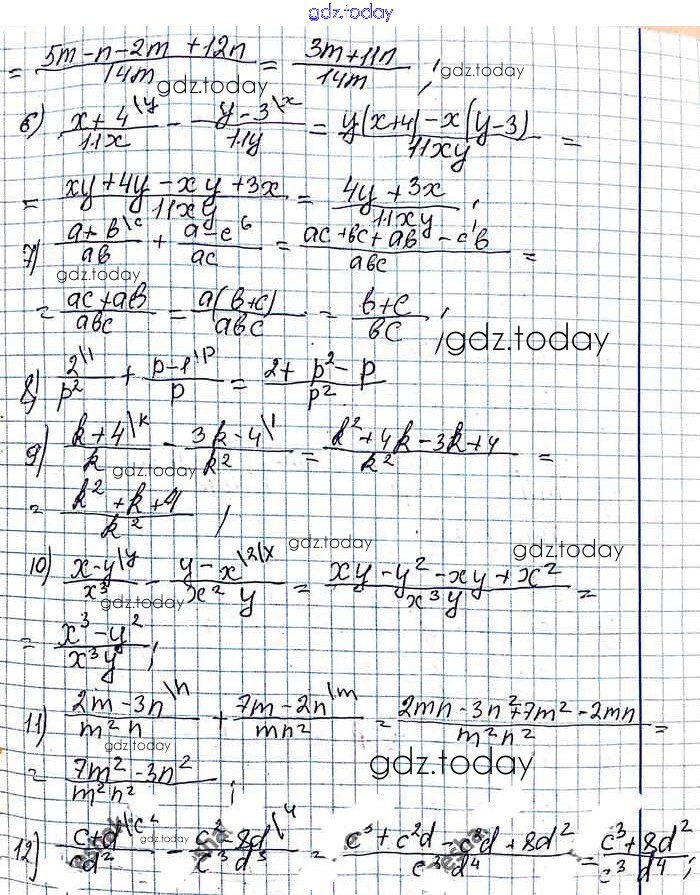 gdz.today
= (5m-n-2m+12n)/14m = (3m+11n)/14m ; gdz.today
gdz.today
6) (x+4\y)/11x - (y-3\x)/11y = (y(x+4)-x(y-3))/11xy =
= (xy+4y-xy+3x)/11xy = (4y+3x)/11xy ;
7) (a+b\c)/ab + (a-c^b)/ac = (ac+bc+ab-cb)/abc =
gdz.today
= (ac+ab)/abc = (a(b+c))/abc = (b+c)/bc ;
gdz.today
8) (2\1)/p² + (p-1\p)/p = (2+p²-p)/p²
9) (k+4\k)/k - (3k-4\1)/k² = (k²+4k-3k+4)/k² =
gdz.today
= (k²+k+4)/k² ;
gdz.today
gdz.today
10) (x-y\y)/x³ - (y-x\2\x)/x²y = (xy-y²-xy+x²)/x³y =
gdz.today
= (x³-y²)/x³y ;
11) (2m-3n\n)/m²n + (7m-2n\m)/mn² = (2mn-3n²+7m²-2mn)/m²n² =
gdz.today
gdz.today
= (7m²-3n²)/m²n² ;
12) (c+d\c²)/cd² - (c²-8d\4)/c³d³ = (c³+c²d-c²d+8d²)/c³d⁴ = (c³+8d²)/c³d⁴ ;
gdz.today